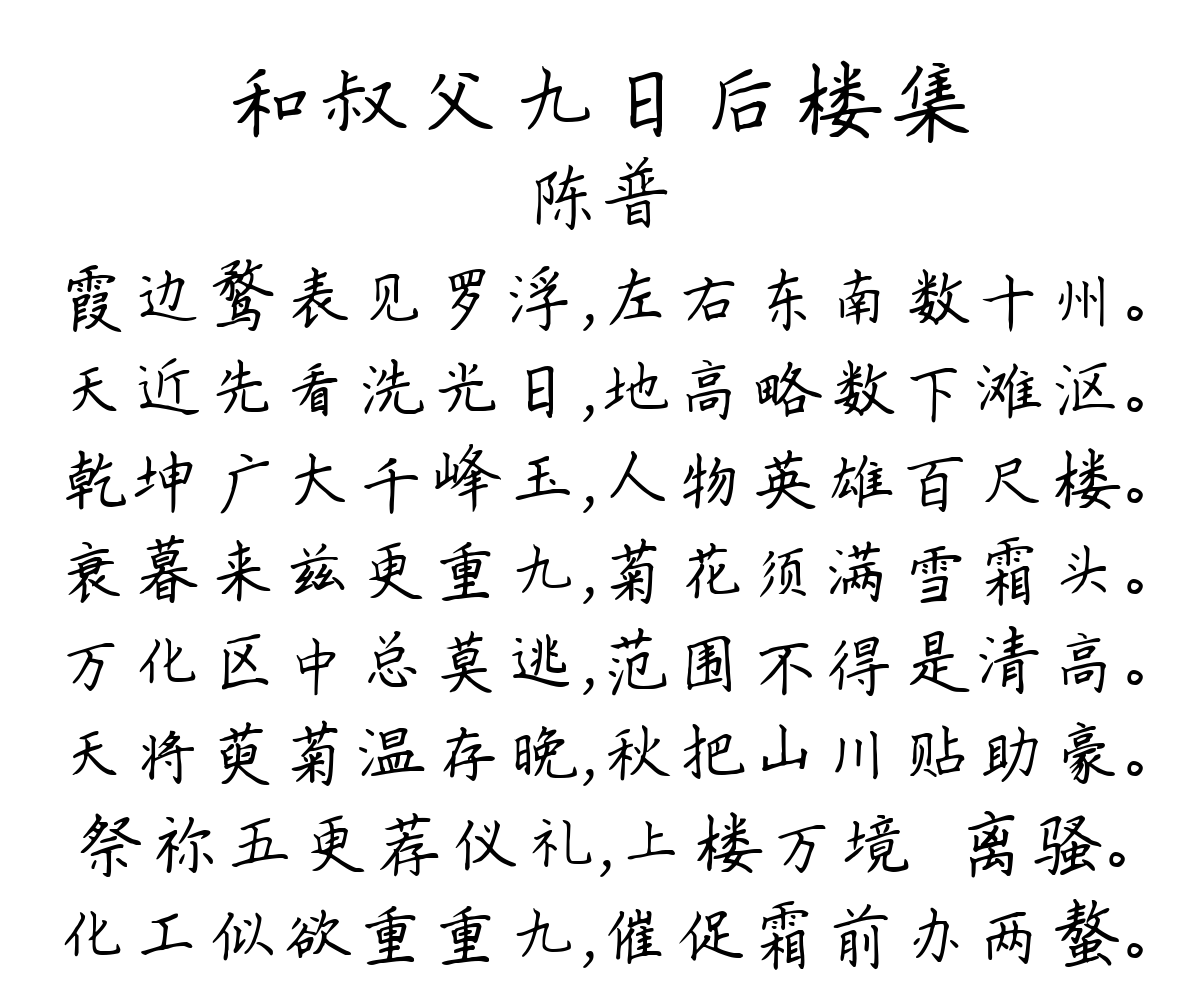 和叔父九日后楼集
陈普
霞边鹜表见罗浮,左右东南数十州。
天近先看洗光日,地高略数下滩沤。
乾坤广大千峰玉,人物英雄百尺楼。
衰暮来兹更重九,菊花须满雪霜头。
万化区中总莫逃,范围不得是清高。
天将萸菊温存晚,秋把山川贴助豪。
祭祢五更荐仪礼,上楼万境 离骚。
化工似欲重重九,催促霜前办两螯。